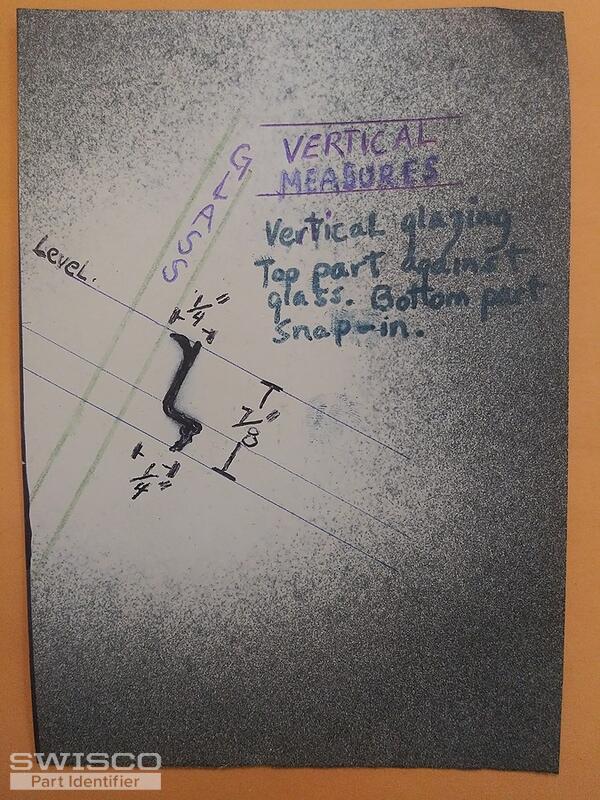 VERTICAL
MEASURES
GLASS
Vertical glazing
Top part against
glass. Bottom part
snap-in.
Level.
1/4"
7/8"
1/4"
SWISCO
Part Identifier